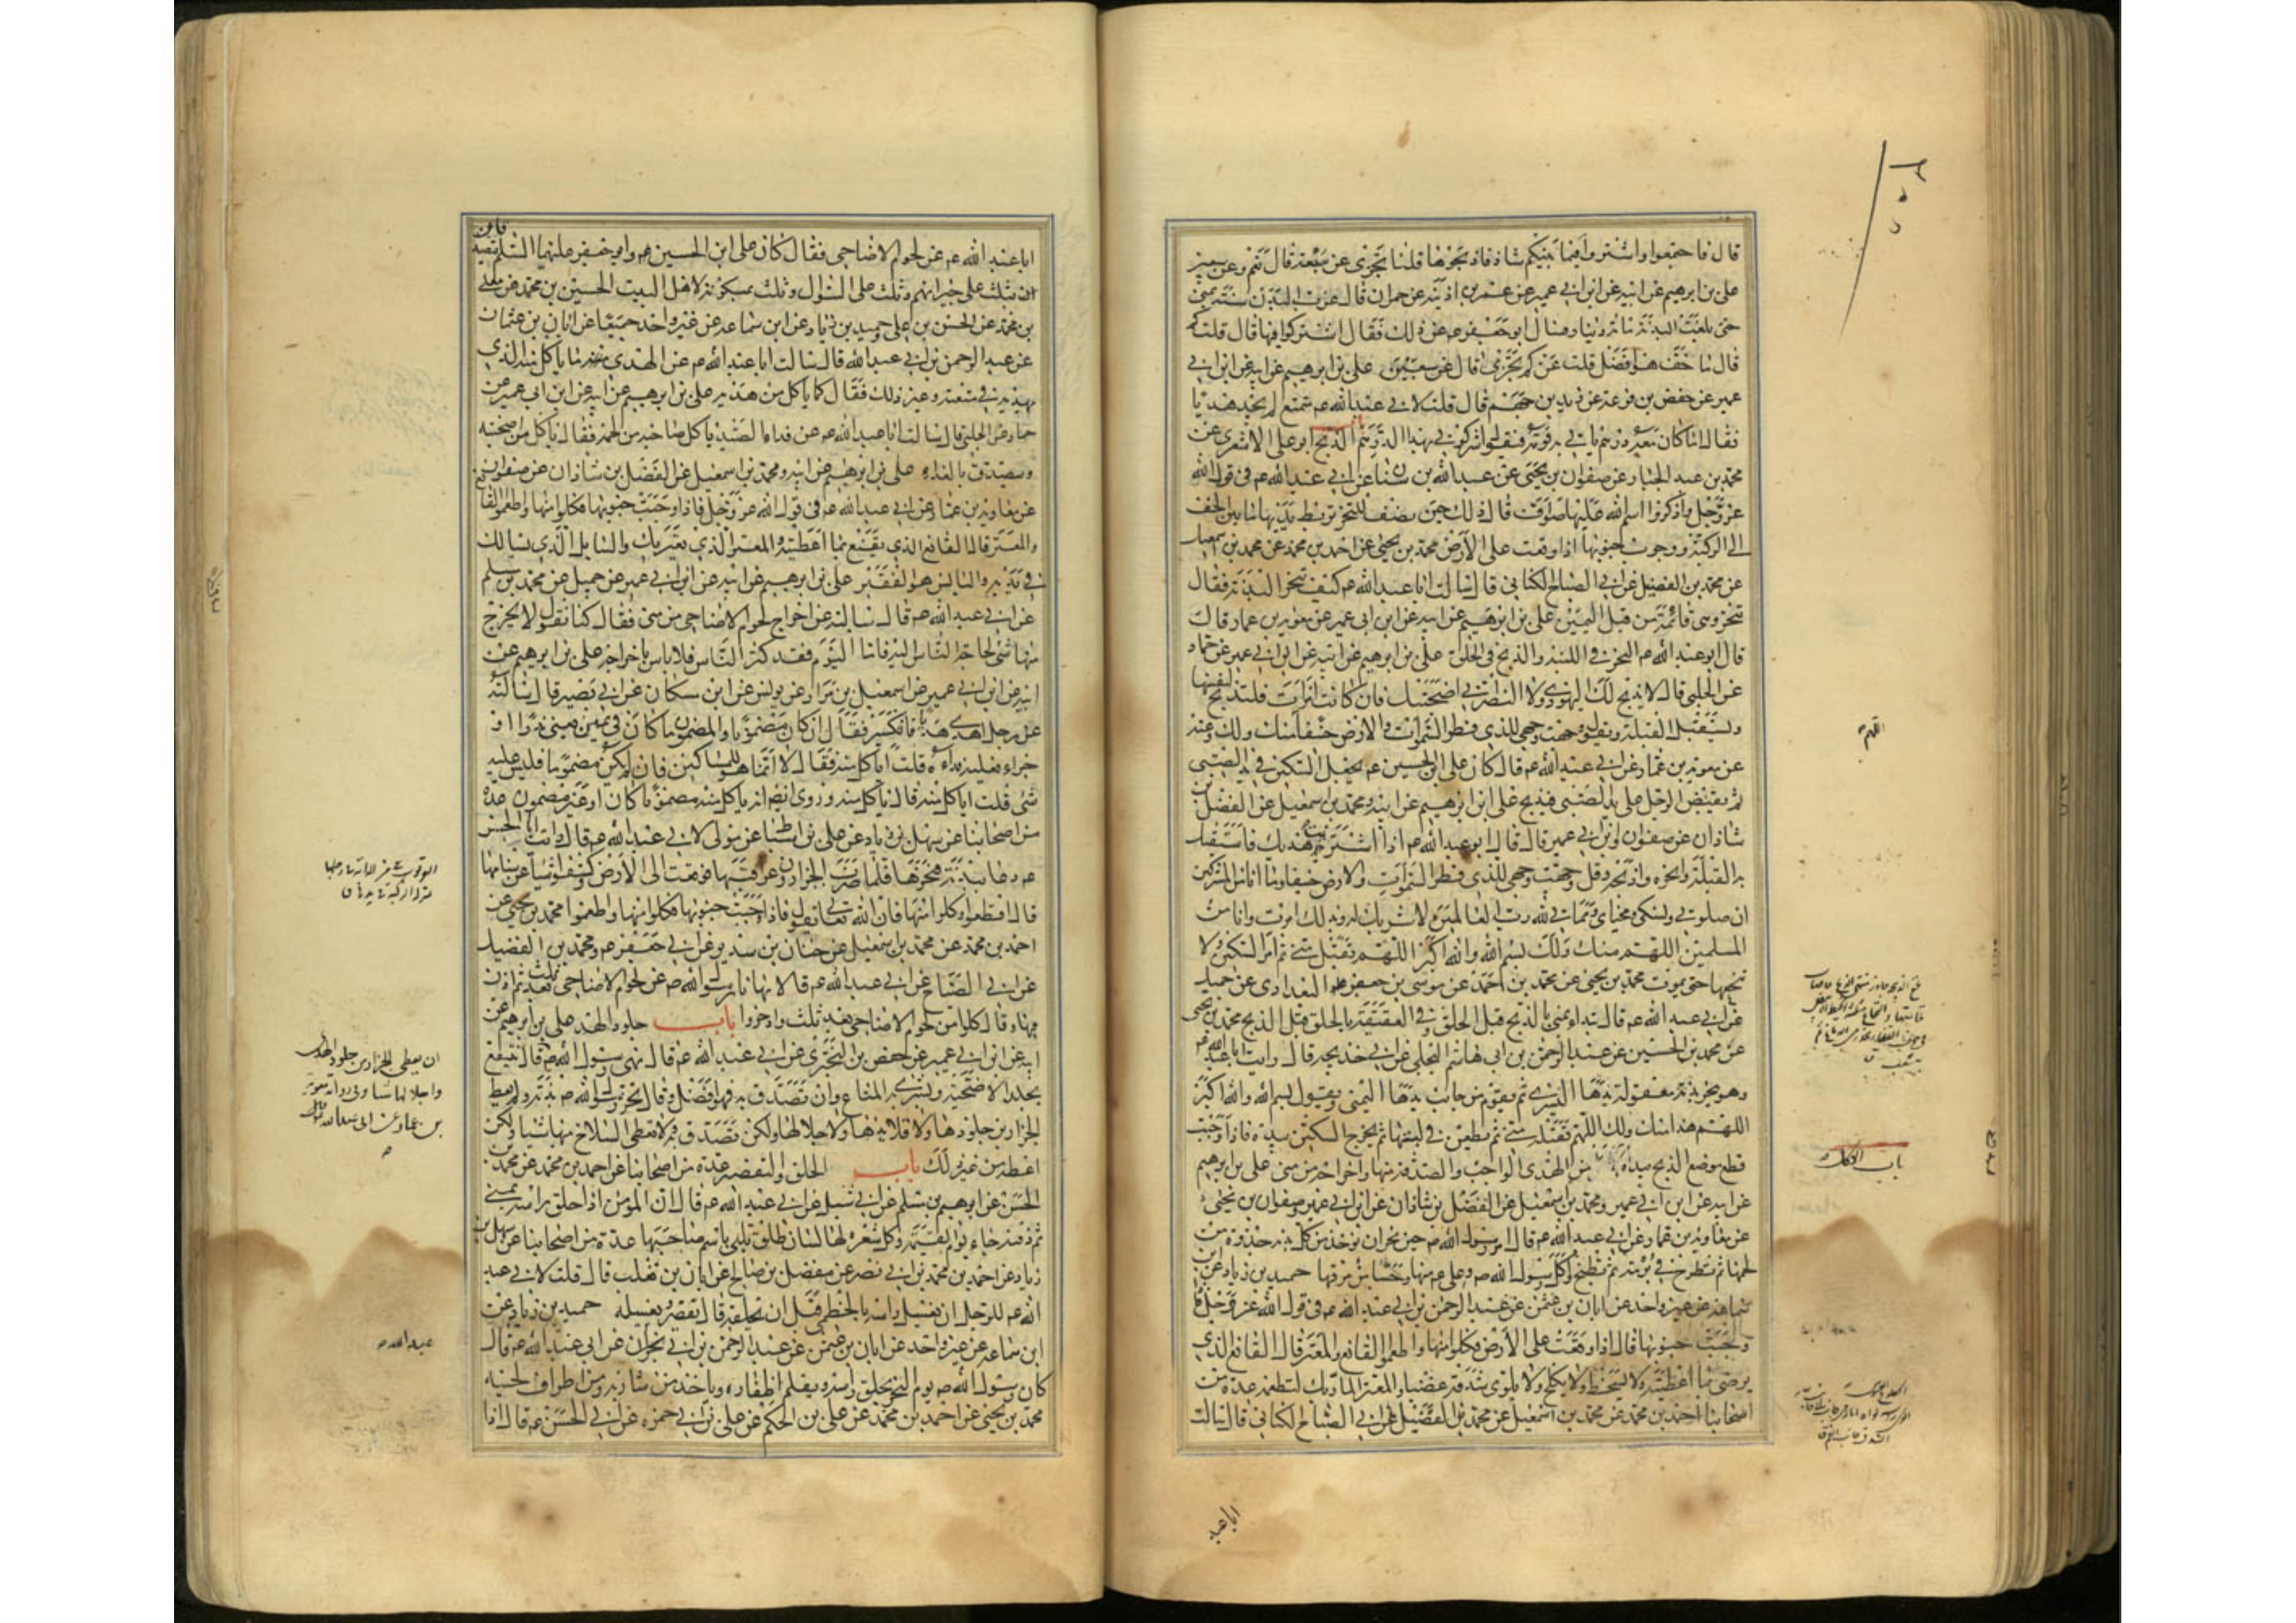 قال فاجتمعوا واشتروا فيما بينكم شاة فاذبحوها قلنا تجزى عن سبعة قال نعم وعن سبعين
على بن ابرهيم عن ابيه عن ابن ابي عمير عن عمر بن اذينة عن حمران قال عزت البدن سنة بمنى
حتى بلغت البدنة مائة دينار فسئل ابو جعفر ع عن ذلك فقال اشتركوا فيها قال قلت كم
قال ما خف هو افضل قلت عن كم تجزى قال عن سبعين على بن ابرهيم عن ابيه عن ابن ابي
عمير عن حفص بن قرعة عن زيد بن جهم قال قلت لابي عبد الله ع متمتع لم يجد هديا
فقال اما كان معه درهم ياتي به قومه فيقول اشركوني بهذا الدرهم باب الذبح ابو على الاشعري عن
محمد بن عبد الجبار عن صفوان بن يحيى عن عبد الله بن سنان عن ابي عبد الله ع في قول الله
عز وجل واذكروا اسم الله عليها صواف قال ذلك حين تصف للنحر تربط يديها ما بين الخف
الى الركبة ووجوب جنوبها اذا وقعت على الارض محمد بن يحيى عن احمد بن محمد عن محمد بن اسمعيل
عن محمد بن الفضيل عن ابي الصباح الكناني قال سالت ابا عبد الله ع كيف تنحر البدنة فقال
تنحر وهى قائمة من قبل اليمين على بن ابرهيم عن ابيه عن ابن ابى عمير عن معوية بن عمار قال
قال ابو عبد الله ع النحر في اللبة والذبح في الحلق على بن ابرهيم عن ابيه عن ابن ابي عمير عن حماد
عن الحلبي قال لا يذبح لك اليهودي ولا النصراني اضحيتك فان كانت امراة فلتذبح لنفسها
وتستقبل القبلة وتقول وجهت وجهي للذي فطر السموات والارض حنيفا منك ولك وعنه
عن معوية بن عمار عن ابي عبد الله ع قال كان على بن الحسين ع يجعل السكين في يد الصبي
ثم يقبض الرجل على يد الصبي فيذبح على ابن ابرهيم عن ابيه ومحمد بن اسمعيل عن الفضل بن
شاذان عن صفوان وابن ابي عمير قال قال ابو عبد الله ع اذا اشتريت هديك فاستقبل
به القبلة وانحره او اذبحه وقل وجهت وجهي للذي فطر السموات والارض حنيفا وما انا من المشركين
ان صلوتي ونسكى ومحياى ومماتي لله رب العالمين لا شريك له وبذلك امرت وانا من
المسلمين اللهم منك ولك بسم الله والله اكبر اللهم تقبل مني ثم امر السكين ولا
تنخعها حتى يموت محمد بن يحيى عن محمد بن احمد عن موسى بن جعفر البغدادى عن جميل
عن ابي عبد الله ع قال تبداء بمنى بالذبح قبل الحلق وفي العقيقة بالحلق قبل الذبح محمد بن يحيى
عن محمد بن الحسين عن عبد الرحمن بن ابى هاشم البجلي عن ابي خديجة قال رايت ابا عبد الله ع
وهو ينحر بدنة معقولة يدها اليسرى ثم يقوم من جانب يدها اليمنى ويقول بسم الله والله اكبر
اللهم هذا منك ولك اللهم تقبله مني ثم يطعن في لبتها ثم يخرج السكين بيده فاذا وجبت
قطع موضع الذبح بيده من الهدى الواجب والصدقة منها واخراجه من منى على بن ابرهيم
عن ابيه عن ابن ابي عمير ومحمد بن اسمعيل عن الفضل بن شاذان عن ابن ابي عمير وصفوان بن يحيى
عن معاوية بن عمار عن ابي عبد الله ع قال امر رسول الله ص حين نحر ان يؤخذ من كل بدنة حذوة من
لحمها ثم تطرح في برمة ثم تطبخ واكل رسول الله ص وعلى ع منها وحسيا من مرقها حميد بن زياد عن ابن
سماعة عن غير واحد عن ابان بن عثمن عن عبد الرحمن بن ابي عبد الله ع في قول الله عز وجل فاذا
وجبت جنوبها قال اذا وقعت على الارض فكلوا منها واطعموا القانع والمعتر قال القانع الذي
يرضى بما اعطيته ولا يسخط ولا يكلح ولا يلوى شدقه غضبا والمعتر المار بك لتطعمه عدة من
اصحابنا احمد بن محمد عن محمد بن اسمعيل عن محمد بن الفضيل عن ابي الصباح الكناني قال سالت
اللهم
باب الاكل
ابا عبد
ابا عبد الله ع عن لحوم الاضاحي فقال كان على ابن الحسين ع وابو جعفر عليهما السلم يتصدقان
بثلث على جيرانهم وثلث على السوال وثلث يمسكونه لاهل البيت الحسين بن محمد عن معلى
بن محمد عن الحسن بن على حميد بن زياد عن ابن سماعة عن غير واحد جميعا عن ابان بن عثمان
عن عبد الرحمن بن ابي عبد الله قال سالت ابا عبد الله ع عن الهدي ما ياكل منه الذي
يهديه في متعته وغير ذلك فقال كما ياكل من هديه على بن ابرهيم عن ابيه عن ابن ابى عمير عن
حماد عن الحلبي قال سالت ابا عبد الله ع عن فداء الصيد ياكل صاحبه من لحمه فقال ياكل من اضحيته
ويتصدق بالفداء على بن ابرهيم عن ابيه ومحمد بن اسمعيل عن الفضل بن شاذان عن صفوان
عن معاوية بن عمار عن ابي عبد الله ع في قول الله عز وجل فاذا وجبت جنوبها فكلوا منها واطعموا القانع
والمعتر قال القانع الذي يقنع بما اعطيته والمعتر الذي يعتريك والسايل الذي يسالك
في يديه والبايس هو الفقير على بن ابرهيم عن ابيه عن ابن ابي عمير عن جميل عن محمد بن مسلم
عن ابي عبد الله ع قال سالته عن اخراج لحوم الاضاحي من منى فقال كنا نقول لا يخرج
منها شى لحاجة الناس اليه فاما اليوم فقد كثر الناس فلا باس باخراجه على بن ابرهيم عن
ابيه عن ابن ابي عمير عن اسمعيل بن مرار عن يونس عن ابن مسكان عن ابي بصير قال سالته
عن رجل اهدى هديا فانكسر فقال ان كان مضمونا والمضمون ما كان في يمين يعني نذرا او
جزاء فعليه فداءه قلت اياكل منه فقال لا انما هو للمساكين فان لم يكن مضمونا فليس عليه
شى قلت اياكل منه قال ياكل منه وروى ايضا انه ياكل منه مضمونا كان او غير مضمون عدة
من اصحابنا عن سهل بن زياد عن على بن اسباط عن مولى لابي عبد الله ع قال رايت ابا الحسن
ع دعا ببدنة فنحرها فلما ضرب الجزارون عراقيبها فوقعت الى الارض وكشفوا شيا عن سنامها
قال اقطعوا وكلوا منها فان الله تعالى يقول فاذا وجبت جنوبها فكلوا منها واطعموا محمد بن يحيى عن
احمد بن محمد عن محمد بن اسمعيل عن حنان بن سدير عن ابي جعفر ع ومحمد بن الفضيل
عن ابي الصباح عن ابي عبد الله ع قالا نهانا رسول الله ص عن لحوم الاضاحي بعد ثلث ثم اذن
فيها وقال كلوا من لحوم الاضاحي بعد ثلث وادخروا باب جلود الهدي على بن ابرهيم عن
ابيه عن ابن ابي عمير عن حفص بن البختري عن ابي عبد الله ع قال نهى رسول الله ص قال ينتفع
بجلد الاضحية ويشترى به المتاع وان تصدق به فهو افضل وقال نحر رسول الله ص بدنة ولم يعط
الجزارين جلودها ولا قلائدها ولا جلالها ولكن تصدق به ولا تعطى السلاخ منها شيا ولكن
اعطه من غير ذلك باب الحلق والتقصير عدة من اصحابنا عن احمد بن محمد عن محمد بن
الحسن عن ابرهيم بن مسلم عن ابي شبل عن ابي عبد الله ع قال ان المؤمن اذا حلق راسه بمنى
ثم دفنه جاء يوم القيمة وكل شعرة لها لسان طلق تلبي باسم صاحبها عدة من اصحابنا عن سهل بن
زياد عن احمد بن محمد بن ابي نصر عن مفضل بن صالح عن ابان بن تغلب قال قلت لابي عبد
الله ع للرجل ان يغسل راسه بالخطمي قبل ان يحلقه قال يقصر ويغسله حميد بن زياد عن
ابن سماعة عن غير واحد عن ابان بن عثمن عن عبد الرحمن بن ابي نجران عن ابي عبد الله ع قال
كان رسول الله ص يوم النحر يحلق راسه ويقلم اظفاره وياخذ من شاربه ومن اطراف لحيته
محمد بن يحيى عن احمد بن محمد عن على بن الحكم عن على بن ابي حمزه عن ابي الحسن ع قال اذا
ان يعطى الجزار من جلود الهدى
واجلالها شيا وفى رواية معوية
بن عمار عن ابى عبد الله
عبد الله ع